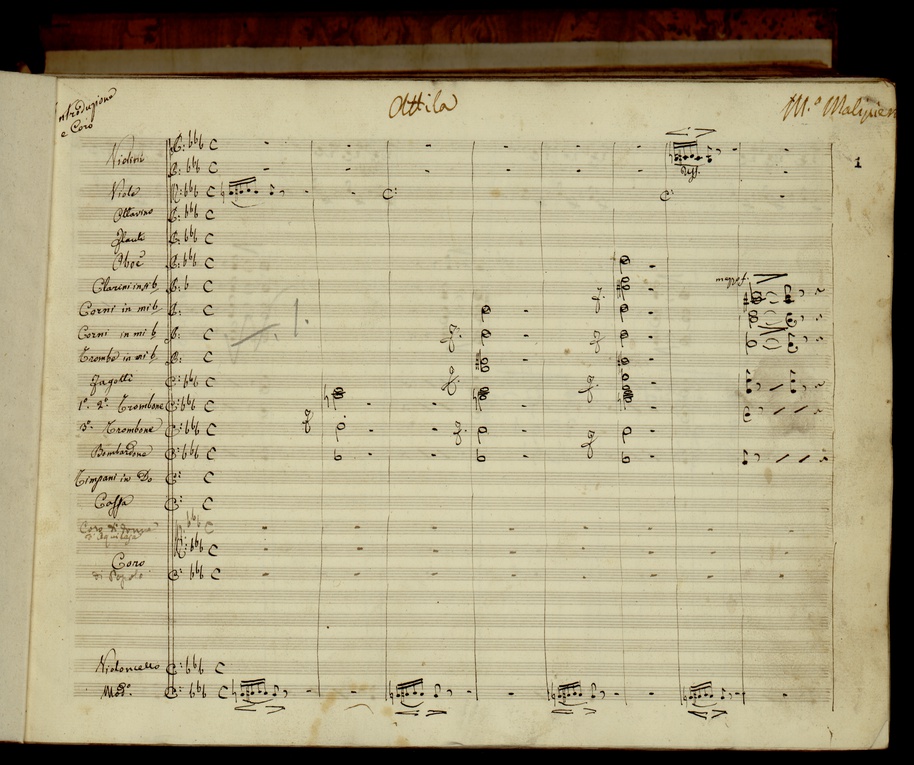 Introduzione
e Coro
Attila
M.º Malipiero
1
Violini
Viole
Ottavino
Flauti
Oboè
Clarini in si b
Corni in mi b
Corni in mi b
Trombe in mi b
Fagotti
1º. 2º. Trombone
3º. Trombone
Bombardone
Timpani in Do
Cassa
Coro di donne
d'Aquileja
Coro
di Popolo
Violoncello